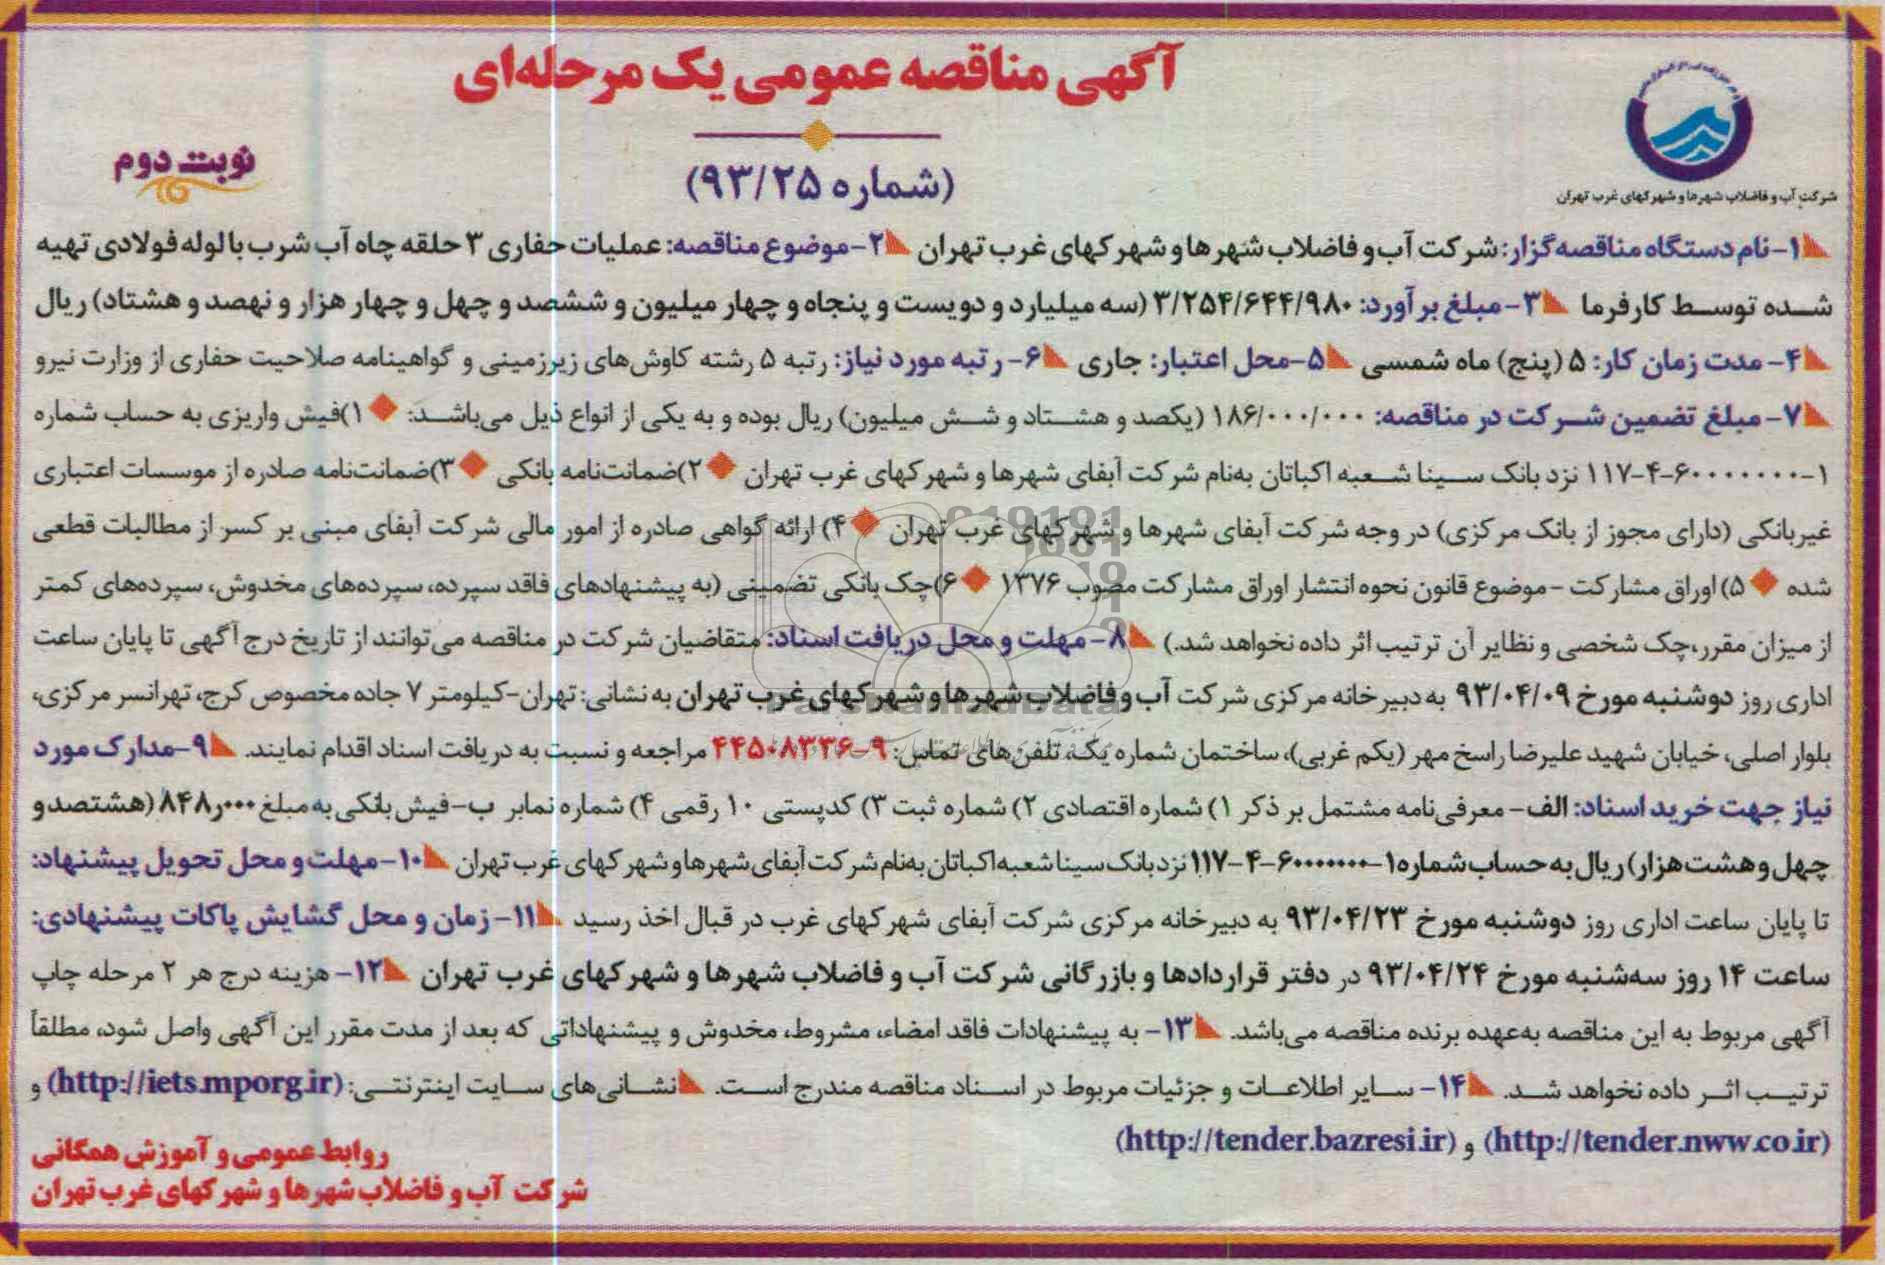 آگهی مناقصه عمومی یک مرحله‌ای
(شماره ۹۳/۲۵)
نوبت دوم
شرکت آب و فاضلاب شهرها و شهرکهای غرب تهران
۱-نام دستگاه مناقصه‌گزار: شرکت آب و فاضلاب شهرها و شهرکهای غرب تهران ۲-موضوع مناقصه: عملیات حفاری ۳ حلقه چاه آب شرب با لوله فولادی تهیه
شده توسط کارفرما ۳-مبلغ برآورد: ۳/۲۵۴/۶۴۴/۹۸۰ (سه میلیارد و دویست و پنجاه و چهار میلیون و ششصد و چهل و چهار هزار و نهصد و هشتاد) ریال
۴- مدت زمان کار: ۵ (پنج) ماه شمسی ۵-محل اعتبار: جاری ۶- رتبه مورد نیاز: رتبه ۵ رشته کاوش‌های زیرزمینی و گواهینامه صلاحیت حفاری از وزارت نیرو
۷- مبلغ تضمین شرکت در مناقصه: ۱۸۶/۰۰۰/۰۰۰ (یکصد و هشتاد و شش میلیون) ریال بوده و به یکی از انواع ذیل می‌باشد: ۱)فیش واریزی به حساب شماره
۱-۶۰۰۰۰۰۰۰-۴-۱۱۷ نزد بانک سینا شعبه اکباتان به‌نام شرکت آبفای شهرها و شهرکهای غرب تهران ۲)ضمانت‌نامه بانکی ۳)ضمانت‌نامه صادره از موسسات اعتباری
غیربانکی (دارای مجوز از بانک مرکزی) در وجه شرکت آبفای شهرها و شهرکهای غرب تهران ۴) ارائه گواهی صادره از امور مالی شرکت آبفای مبنی بر کسر از مطالبات قطعی
شده ۵) اوراق مشارکت -موضوع قانون نحوه انتشار اوراق مشارکت مصوب ۱۳۷۶ ۶)چک بانکی تضمینی (به پیشنهادهای فاقد سپرده، سپرده‌های مخدوش، سپرده‌های کمتر
از میزان مقرر،چک شخصی و نظایر آن ترتیب اثر داده نخواهد شد.) ۸- مهلت و محل دریافت اسناد: متقاضیان شرکت در مناقصه می‌توانند از تاریخ درج آگهی تا پایان ساعت
اداری روز دوشنبه مورخ ۹۳/۰۴/۰۹ به دبیرخانه مرکزی شرکت آب و فاضلاب شهرها و شهرکهای غرب تهران به نشانی: تهران-کیلومتر ۷ جاده مخصوص کرج، تهرانسر مرکزی،
بلوار اصلی، خیابان شهید علیرضا راسخ مهر (یکم غربی)، ساختمان شماره یک، تلفن‌های تماس: ۹-۴۴۵۰۸۳۳۶ مراجعه و نسبت به دریافت اسناد اقدام نمایند. ۹-مدارک مورد
نیاز جهت خرید اسناد: الف- معرفی‌نامه مشتمل بر ذکر ۱) شماره اقتصادی ۲) شماره ثبت ۳) کدپستی ۱۰ رقمی ۴) شماره نمابر ب-فیش بانکی به مبلغ ۸۴۸ر۰۰۰ (هشتصد و
چهل و هشت هزار) ریال به حساب شماره ۱-۶۰۰۰۰۰۰۰-۴-۱۱۷ نزد بانک سینا شعبه اکباتان به‌نام شرکت آبفای شهرها و شهرکهای غرب تهران ۱۰-مهلت و محل تحویل پیشنهاد:
تا پایان ساعت اداری روز دوشنبه مورخ ۹۳/۰۴/۲۳ به دبیرخانه مرکزی شرکت آبفای شهرکهای غرب در قبال اخذ رسید ۱۱- زمان و محل گشایش پاکات پیشنهادی:
ساعت ۱۴ روز سه‌شنبه مورخ ۹۳/۰۴/۲۴ در دفتر قراردادها و بازرگانی شرکت آب و فاضلاب شهرها و شهرکهای غرب تهران ۱۲- هزینه درج هر ۲ مرحله چاپ
آگهی مربوط به این مناقصه به‌عهده برنده مناقصه می‌باشد. ۱۳- به پیشنهادات فاقد امضاء، مشروط، مخدوش و پیشنهاداتی که بعد از مدت مقرر این آگهی واصل شود، مطلقاً
ترتیب اثر داده نخواهد شد. ۱۴- سایر اطلاعات و جزئیات مربوط در اسناد مناقصه مندرج است. نشانی‌های سایت اینترنتی: (http://iets.mporg.ir) و
(http://tender.nww.co.ir) و (http://tender.bazresi.ir)
روابط عمومی و آموزش همگانی
شرکت آب و فاضلاب شهرها و شهرکهای غرب تهران